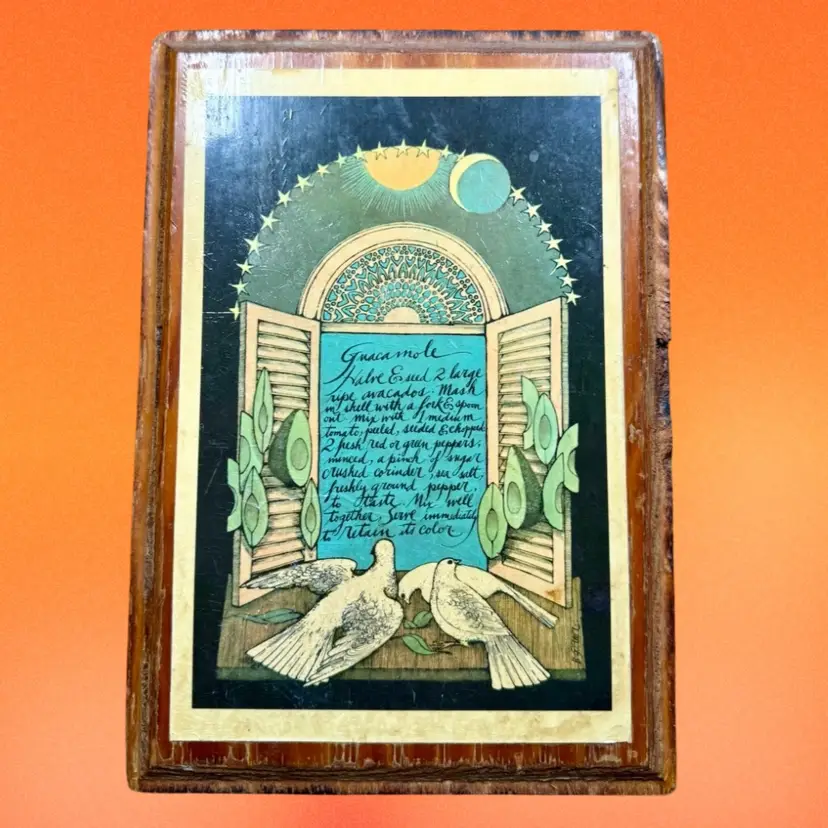 Guacamole
Halve & seed 2 large
ripe avacados. Mash
in shell with a fork & spoon
out. Mix with 1 medium
tomato, peeled, seeded & chopped
2 fresh red or green peppers,
minced, a pinch of sugar
crushed corinder, sea salt,
freshly ground pepper,
to taste. Mix well
together. Serve immediately
to retain its color